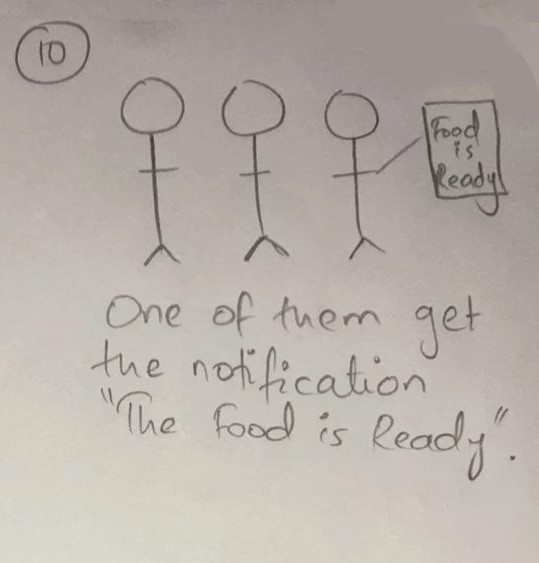 10
Food
is
Ready
One of them get
the notification
"The Food is Ready".